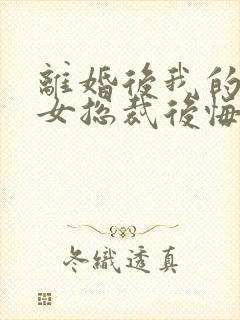 離婚後我的
女总裁後悔
冬織透真